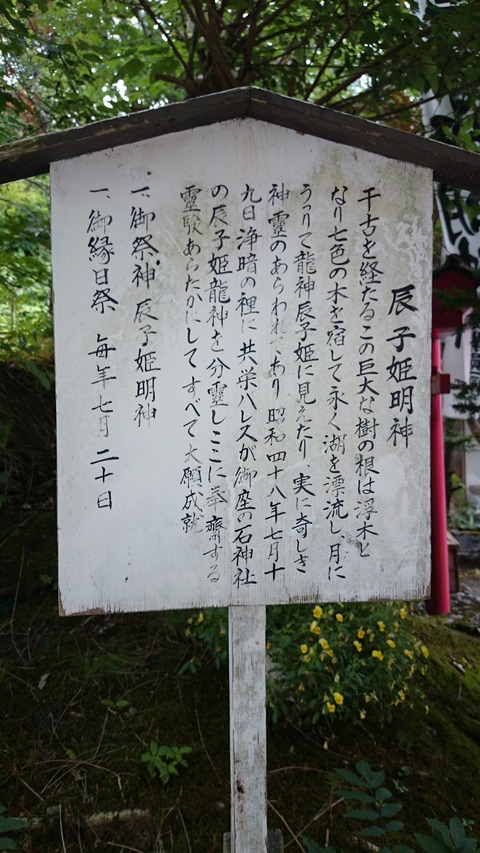 辰子姫明神
千古を経たるこの巨大な樹の根は浮木と
なり七色の木を宿して永く湖を漂流し、月に
うつりて龍神辰子姫に見えたり、実に奇しき
神霊のあらわれであり昭和四十八年七月十
九日浄暗の裡に共栄パレスが御座の石神社
の辰子姫龍神を分霊しここに奉齋する
霊験あらたかにしてすべて大願成就
一、御祭神 辰子姫明神
一、御縁日祭 毎年七月二十日